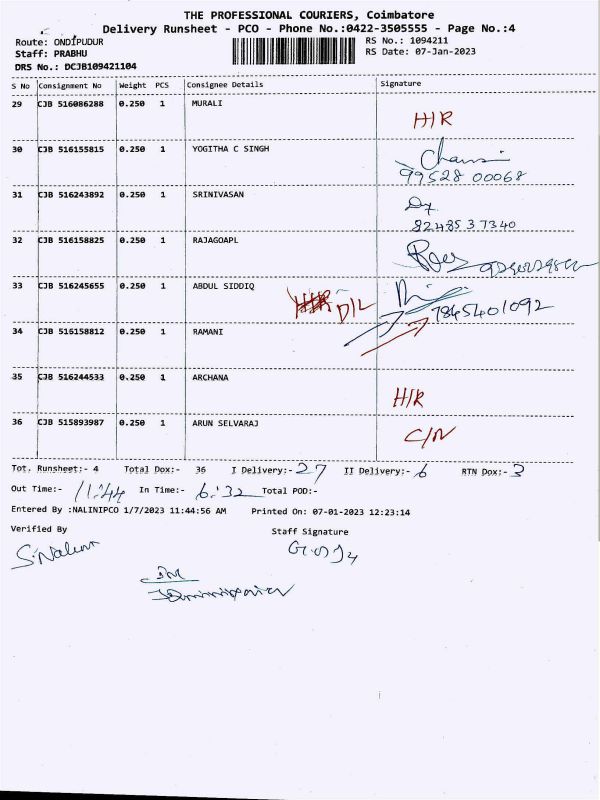 THE PROFESSIONAL COURIERS, Coimbatore
Delivery Runsheet - PCO - Phone No.:0422-3505555 - Page No.:4
Route: ONDIPUDUR RS No.: 1094211
Staff: PRABHU RS Date: 07-Jan-2023
DRS No.: DCJB109421104
S No Consignment No Weight PCS Consignee Details Signature
29 CJB 516086288 0.250 1 MURALI H/R
30 CJB 516155815 0.250 1 YOGITHA C SINGH
99528 00068
31 CJB 516243892 0.250 1 SRINIVASAN
82485 37340
32 CJB 516158825 0.250 1 RAJAGOAPL
33 CJB 516245655 0.250 1 ABDUL SIDDIQ D/L
7845401092
34 CJB 516158812 0.250 1 RAMANI
35 CJB 516244533 0.250 1 ARCHANA H/R
36 CJB 515893987 0.250 1 ARUN SELVARAJ C/N
Tot. Runsheet:- 4 Total Dox:- 36 I Delivery:- 27 II Delivery:- 6 RTN Dox:- 3
Out Time:- 11:44 In Time:- 6:32 Total POD:-
Entered By :NALINIPCO 1/7/2023 11:44:56 AM Printed On: 07-01-2023 12:23:14
Verified By Staff Signature
S.Nalini